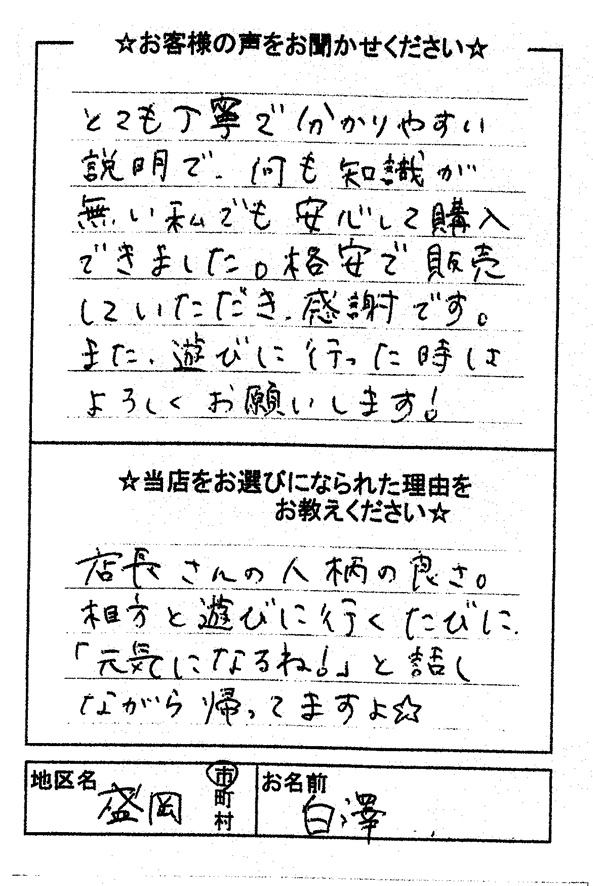 ☆お客様の声をお聞かせください☆
とても丁寧で分かりやすい
説明で、何も知識が
無い私でも安心して購入
できました。格安で販売
していただき、感謝です。
また、遊びに行った時は
よろしくお願いします!
☆当店をお選びになられた理由を
お教えください☆
店長さんの人柄の良さ。
相方と遊びに行くたびに、
「元気になるね!」と話し
ながら帰ってますよ☆
地区名 盛岡 市町村 お名前 白澤